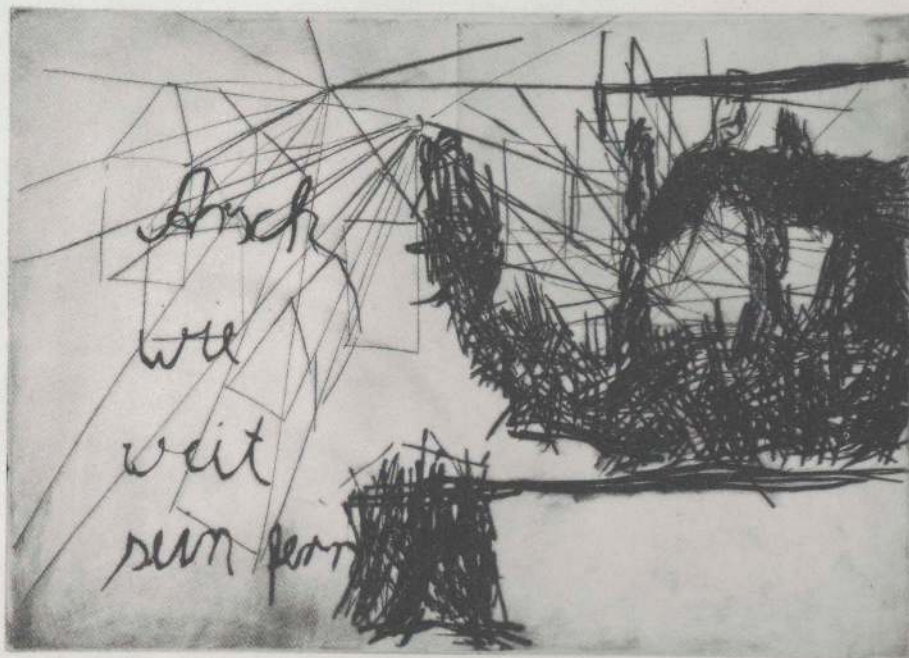 Arsch
wie
weit
sein fern